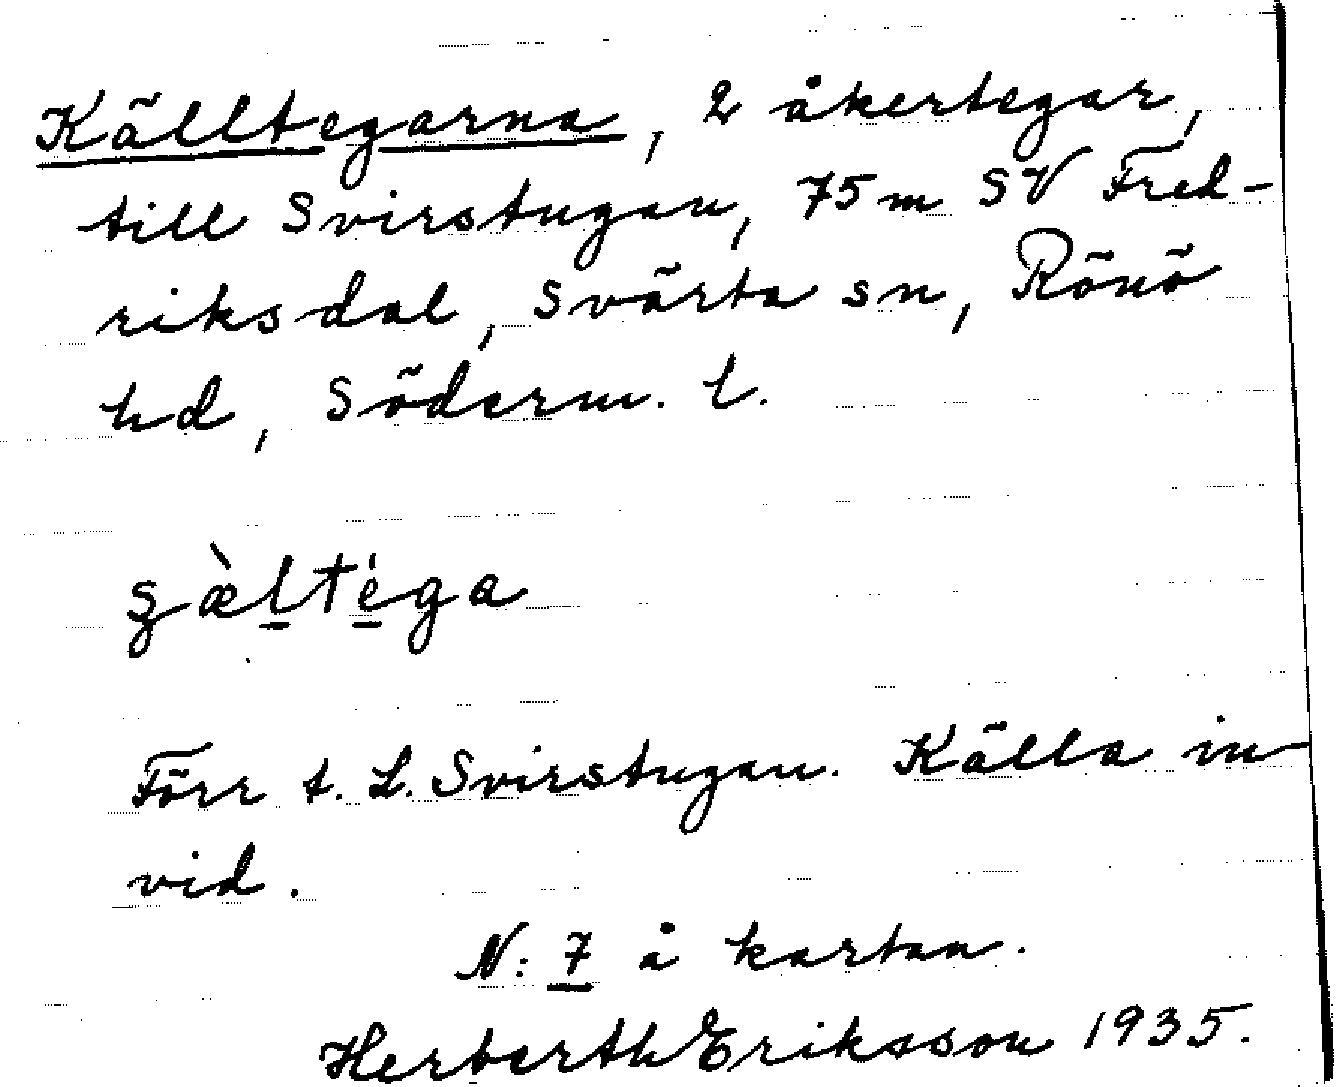 Källtegarna, 2 åkertegar,
till Svirstugan, 75 m SV Fred-
riksdal, Svärta sn, Rönö
hd, Söderm. l.
Förr t. L. Svirstugan. Källa in
vid.
N: 7 å kartan.
Herberth Eriksson 1935.